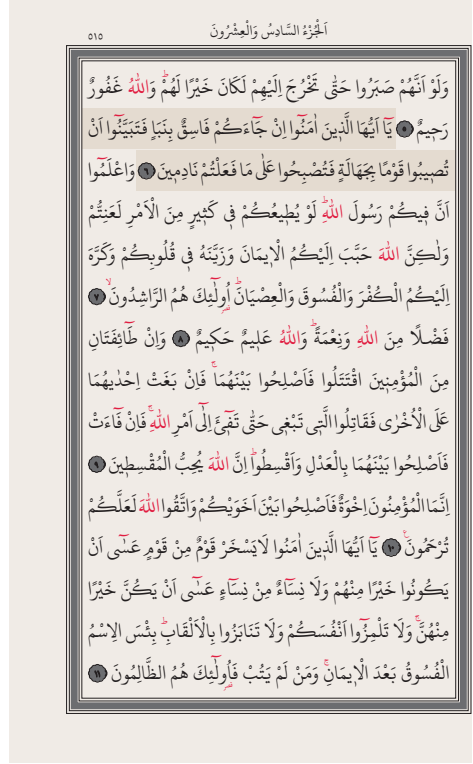 اَلْجُزْءُ السَّادِسُ وَالْعِشْرُونَ
٥١٥
وَلَوْ اَنَّهُمْ صَبَرُوا حَتّٰى تَخْرُجَ اِلَيْهِمْ لَكَانَ خَيْرًا لَهُمْؕ وَاللّٰهُ غَفُورٌ
رَحٖيمٌ ﴿٥﴾ يَٓا اَيُّهَا الَّذٖينَ اٰمَنُٓوا اِنْ جَٓاءَكُمْ فَاسِقٌ بِنَبَاٍ فَتَبَيَّنُٓوا اَنْ
تُصٖيبُوا قَوْمًا بِجَهَالَةٍ فَتُصْبِحُوا عَلٰى مَا فَعَلْتُمْ نَادِمٖينَ ﴿٦﴾ وَاعْلَمُٓوا
اَنَّ فٖيكُمْ رَسُولَ اللّٰهِؕ لَوْ يُطٖيعُكُمْ فٖي كَثٖيرٍ مِنَ الْاَمْرِ لَعَنِتُّمْ
وَلٰكِنَّ اللّٰهَ حَبَّبَ اِلَيْكُمُ الْاٖيمَانَ وَزَيَّنَهُ فٖي قُلُوبِكُمْ وَكَرَّهَ
اِلَيْكُمُ الْكُفْرَ وَالْفُسُوقَ وَالْعِصْيَانَؕ اُو۬لٰٓئِكَ هُمُ الرَّاشِدُونَۙ ﴿٧﴾
فَضْلًا مِنَ اللّٰهِ وَنِعْمَةًؕ وَاللّٰهُ عَلٖيمٌ حَكٖيمٌ ﴿٨﴾ وَاِنْ طَٓائِفَتَانِ
مِنَ الْمُؤْمِنٖينَ اقْتَتَلُوا فَاَصْلِحُوا بَيْنَهُمَاۚ فَاِنْ بَغَتْ اِحْدٰيهُمَا
عَلَى الْاُخْرٰى فَقَاتِلُوا الَّتٖي تَبْغٖي حَتّٰى تَفٖٓيءَ اِلٰٓى اَمْرِ اللّٰهِۚ فَاِنْ فَٓاءَتْ
فَاَصْلِحُوا بَيْنَهُمَا بِالْعَدْلِ وَاَقْسِطُواؕ اِنَّ اللّٰهَ يُحِبُّ الْمُقْسِطٖينَ ﴿٩﴾
اِنَّمَا الْمُؤْمِنُونَ اِخْوَةٌ فَاَصْلِحُوا بَيْنَ اَخَوَيْكُمْ وَاتَّقُوا اللّٰهَ لَعَلَّكُمْ
تُرْحَمُونَۚ ﴿١٠﴾ يَٓا اَيُّهَا الَّذٖينَ اٰمَنُوا لَا يَسْخَرْ قَوْمٌ مِنْ قَوْمٍ عَسٰٓى اَنْ
يَكُونُوا خَيْرًا مِنْهُمْ وَلَا نِسَٓاءٌ مِنْ نِسَٓاءٍ عَسٰٓى اَنْ يَكُنَّ خَيْرًا
مِنْهُنَّۚ وَلَا تَلْمِزُٓوا اَنْفُسَكُمْ وَلَا تَنَابَزُوا بِالْاَلْقَابِؕ بِئْسَ الِاسْمُ
الْفُسُوقُ بَعْدَ الْاٖيمَانِۚ وَمَنْ لَمْ يَتُبْ فَاُو۬لٰٓئِكَ هُمُ الظَّالِمُونَ ﴿١١﴾